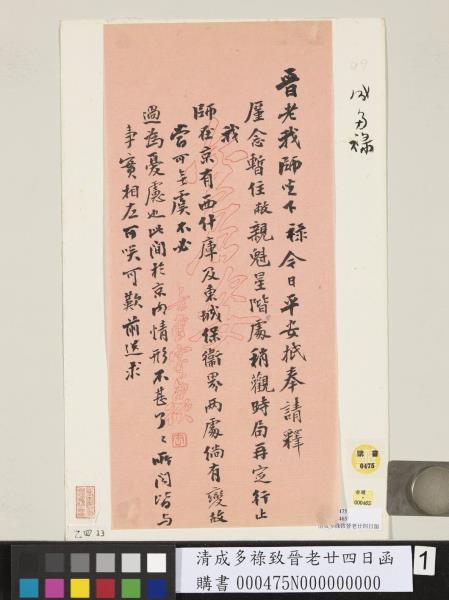 成多祿
晉老我師坐下祿今日平安抵奉請釋
廑念暫住敝親魁星階處稍觀時局再定行止
我
師在京有西什庫及東城保衛界兩處倘有變故
當可無虞不必
過為憂慮也此間於京內情形不甚了〻所聞皆与
事實相左可笑可歎前送求
購書
0475
000462
475
乙四 13
清成多祿致晉老廿四日函
清成多祿致晉老廿四日函
購書 000475N000000000
1